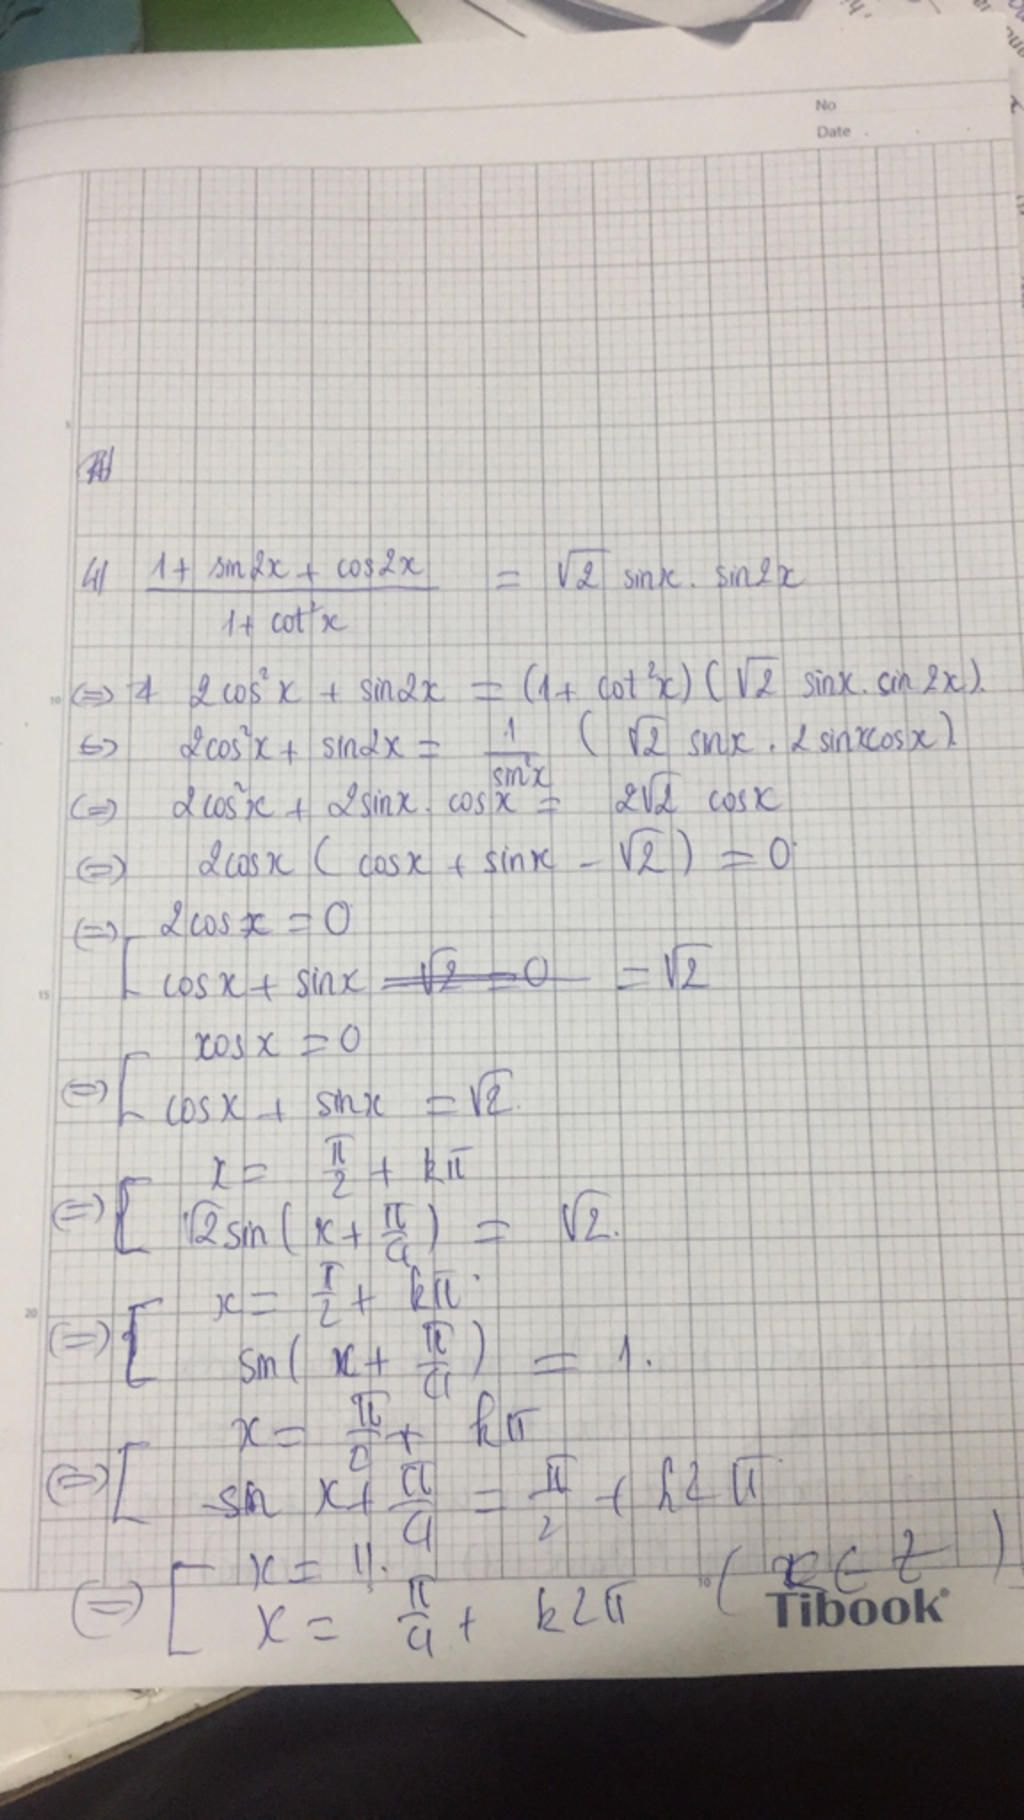 No
Date
5
4) (1 + sin2x + cos2x) / (1 + cot²x) = √2 sinx . sin2x
10 (=) 2cos²x + sin2x = (1 + cot²x)(√2 sinx. sin2x).
(=) 2cos²x + sin2x = 1/sin²x (√2 sinx . 2sinxcosx).
(=) 2cos²x + 2sinx. cosx = 2√2 cosx
(=) 2cosx (cosx + sinx - √2) = 0
(=) [ 2cosx = 0
15 cosx + sinx = √2
cosx = 0
(=) [ cosx + sinx = √2.
x = π/2 + kπ
(=) [ √2sin(x + π/4) = √2.
20 x = π/2 + kπ
(=) [ sin(x + π/4) = 1.
x = π/2 + kπ
(=) [ x + π/4 = π/2 + k2π
x = 11.
(=) [ x = π/4 + k2π (
10
Tibook